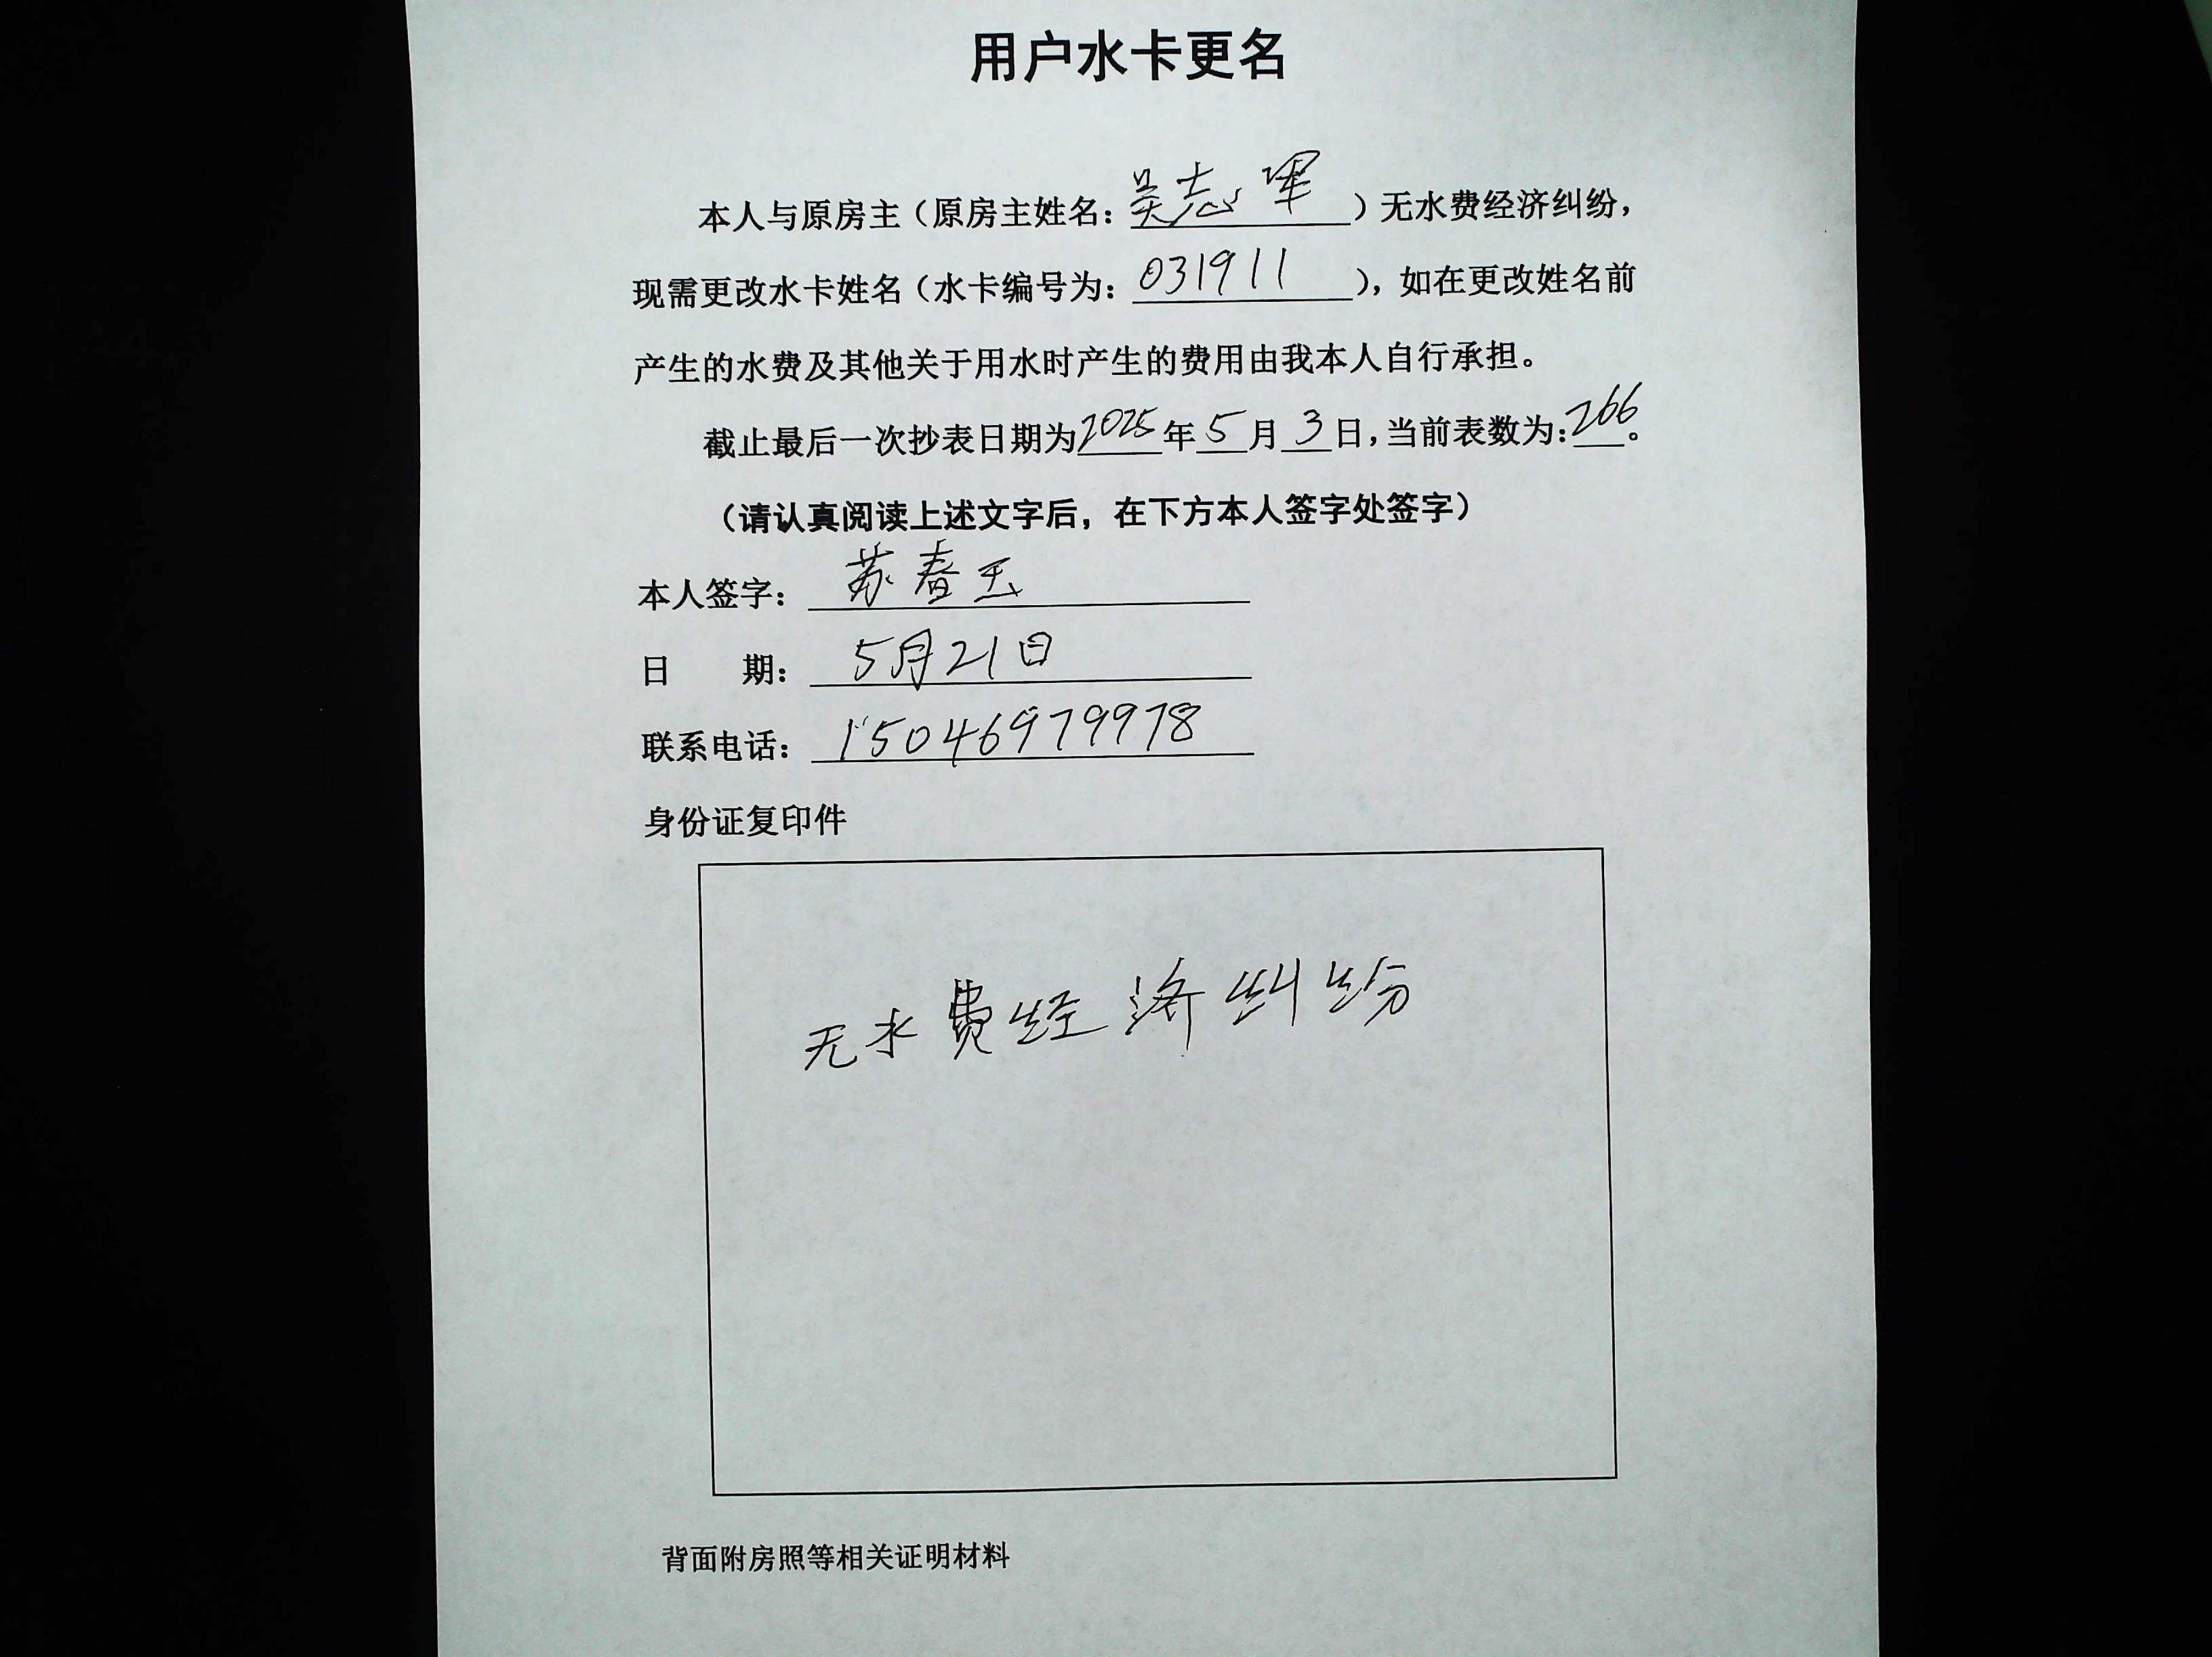 用户水卡更名
本人与原房主（原房主姓名：吴志军）无水费经济纠纷，
现需更改水卡姓名（水卡编号为：031911），如在更改姓名前
产生的水费及其他关于用水时产生的费用由我本人自行承担。
截止最后一次抄表日期为2025年5月3日，当前表数为：266。
（请认真阅读上述文字后，在下方本人签字处签字）
本人签字：苏春玉
日 期：5月21日
联系电话：15046979978
身份证复印件
无水费经济纠纷
背面附房照等相关证明材料